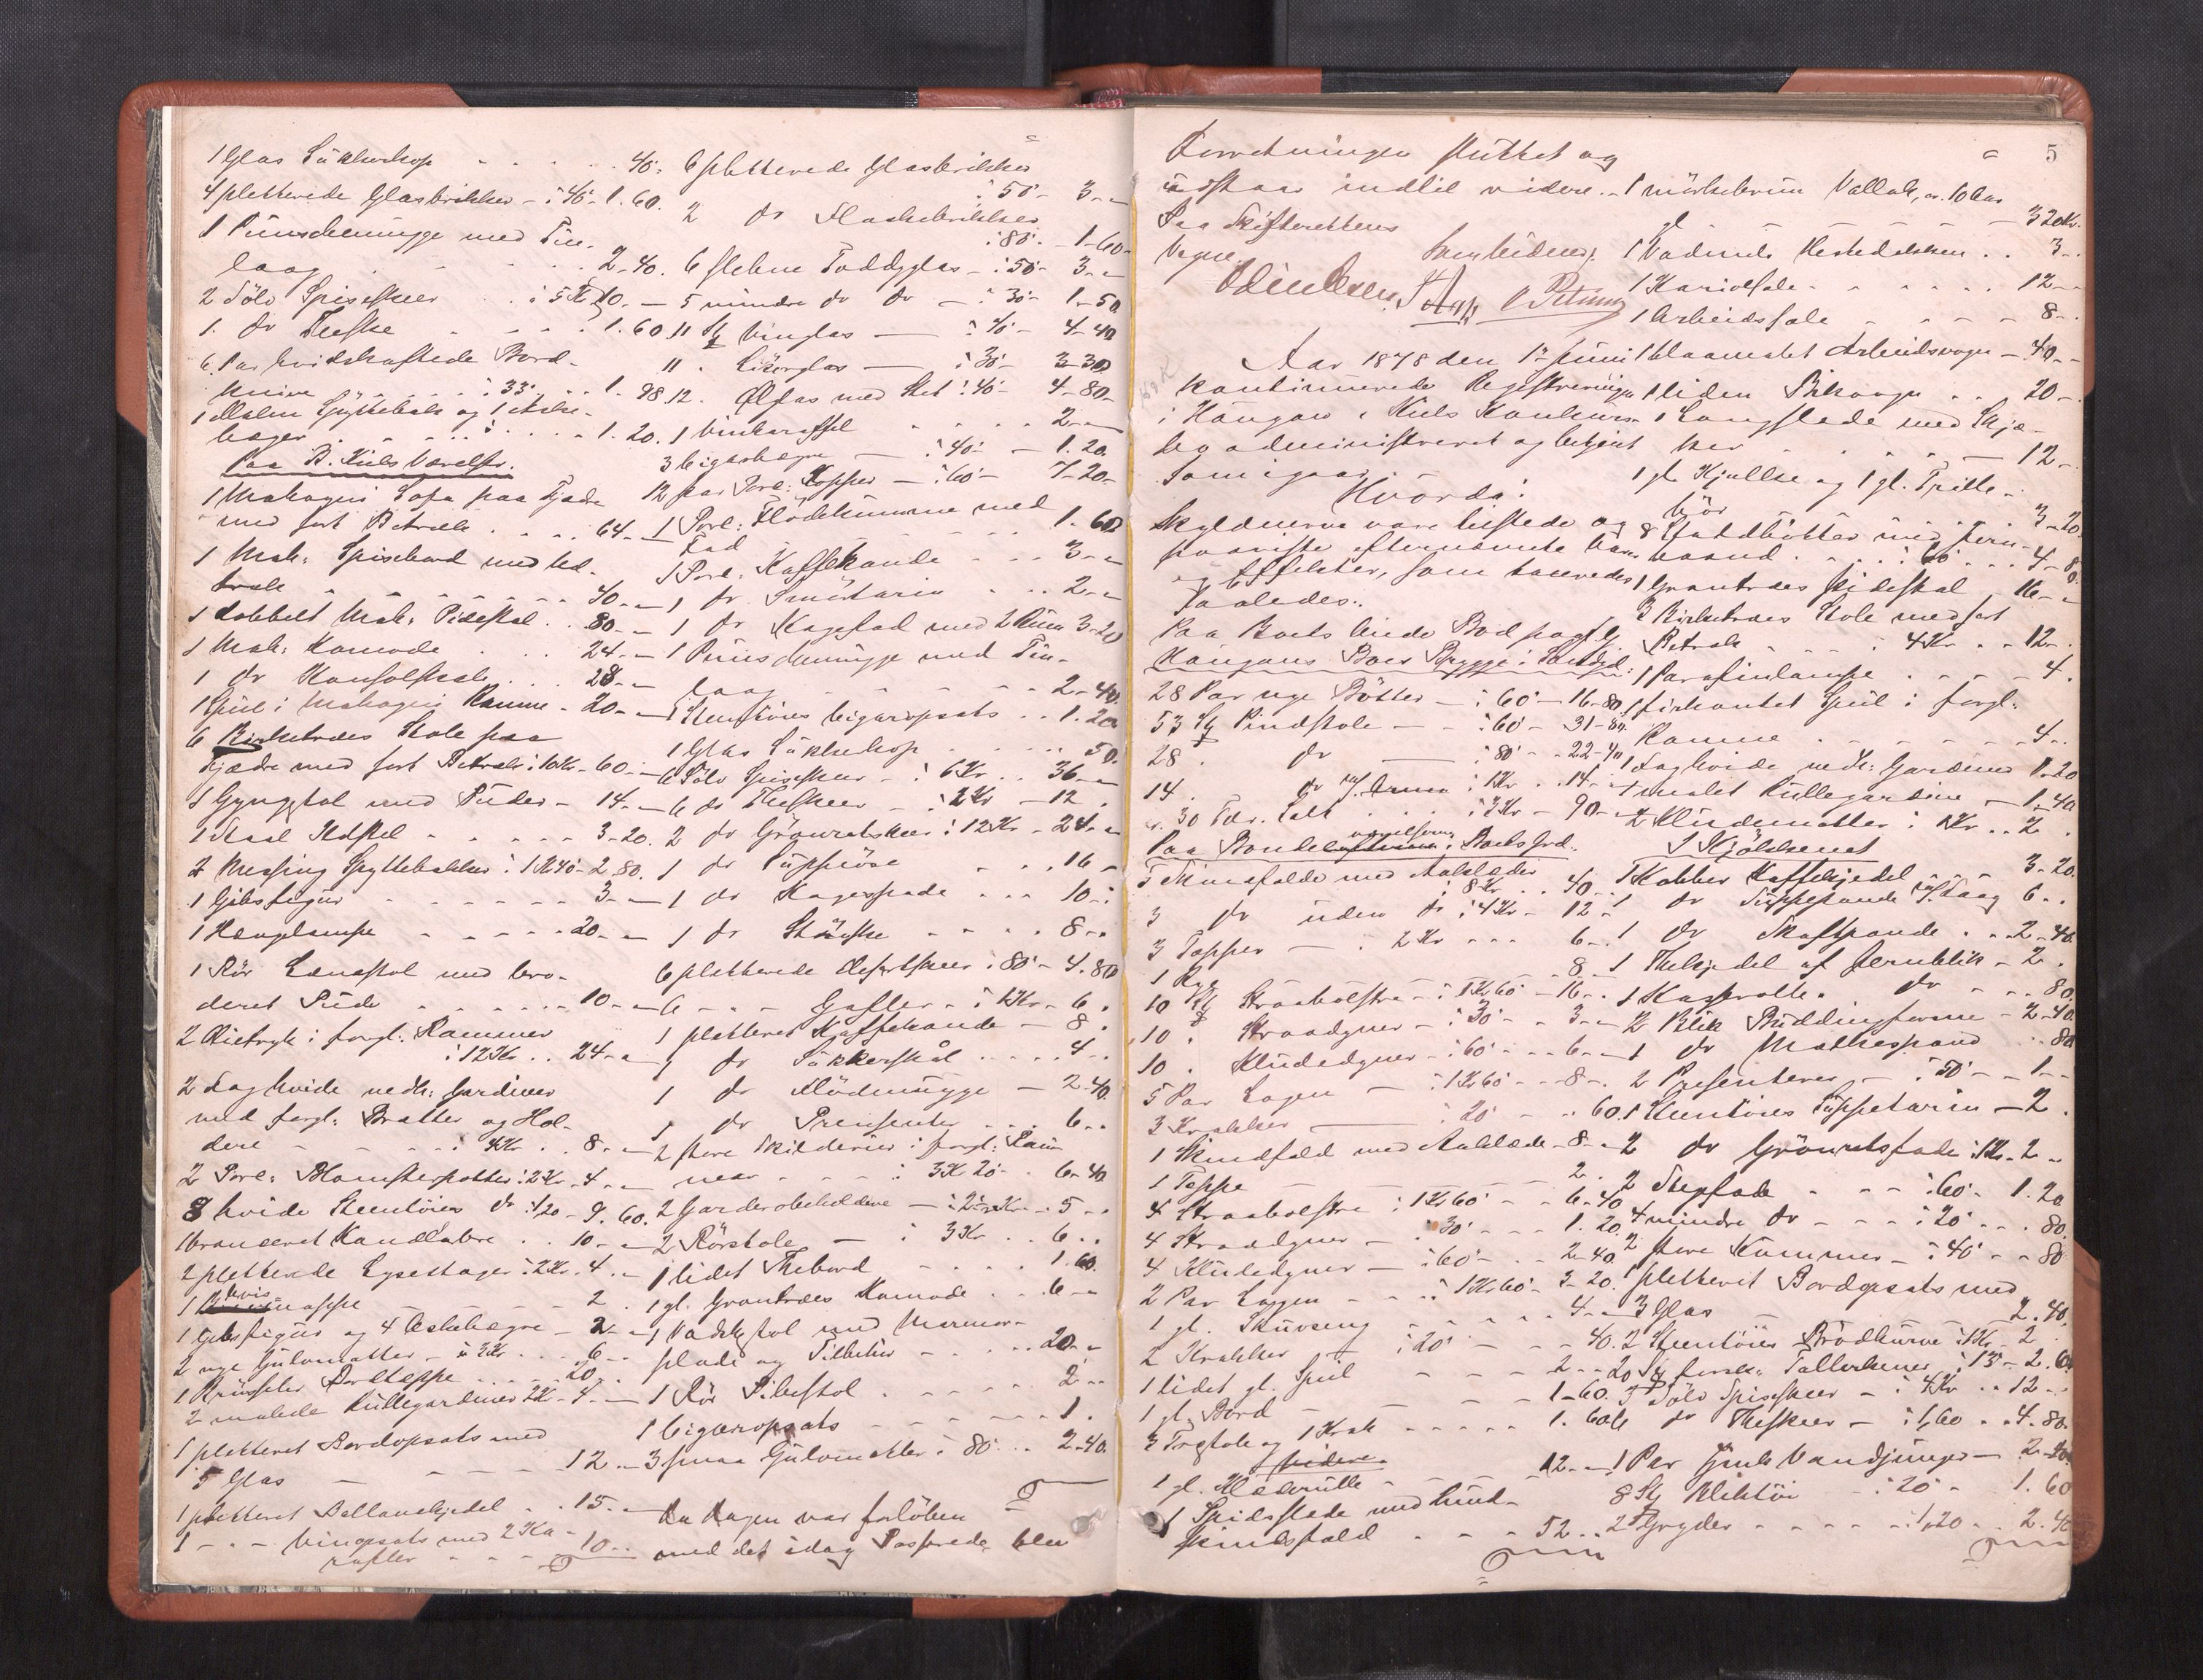 1 Glas Sukkerkop - - - - . 40.
4 plettede Glasbrikker - à 40 - 1. 60.
1 Punschemugge med Tin-
laag . . . . . . 2-40.
2 Sölv Spiseskeer . . à 5 Kr 10. -
1. do Theske - . . . . 1. 60.
6. Par hvidskaftede Bord-
knive . . . . à 33 . . 1. 98
1 Malm Spyttebak og 1 Aske-
bæger . . . . . . . 1. 20.
Paa B. Kiels Værelse.
1 Mahogni Sofa paa Fjædre
med sort Betræk . . . . 64. -
1 Mah: Spisebord med Ud-
træk - - - - - - - 40. -
1 dobbelt Mah: Pidestal . . 80. -
1 Mah: Komode . . . 24. -
1 do Konsolskab . . . 28. -
1 Speil i Mahogni Ramme - 20. -
6 Birketræes Stole paa
Fjædre med sort Betræk à 10 Kr - 60. -
1 Gyngstol med Puder - 14. -
1 Staal Ildstel - - - - - 3-20.
2 Messing Spyttebakker à 1 Kr 40 - 2. 80.
1 Gibsfigur - - - - - - 3. -
1 Hænglampe - - - - - 20. -
1 Rör Lænestol med bro-
deret Pude - - - - - - 10. -
2 Olietryk i forgl: Rammer
à 12 Kr . . 24. -
2 Fag hvide nedh: Gardiner
med forgl: Bratter og Hol-
dere - - - - à 4 Kr . . 8. -
2 Porc: Blomsterpotter à 2 Kr - 4. -
8 hvide Stentöies do à 1,20 - 9. 60.
1 bronceret Kandelabre . . 10. -
2 pletterede Lysestager à 2 Kr . 4. -
1 - - - 2.
1 Gibsfigur og 4 Askebægre - 2. -
2 nye Gulvmatter - à 3 Kr . . . 6 - .
1 Brüsseler Bordteppe . . . . . 20 . .
2 malede Rullegardiner 2 Kr - 4. -
1 pletteret Bordopsats med
5 Glas - - - - - 12. -
1 pletteret Ballanskjedel . . 15. -
1 - - - Vinopsats med 2 Ka-
rafler - - - - 10 . .
6 pletterede Glasbrikker
à 50 - 3. -
2 do Flaskebrikker
à 80. - 1-60.
6 slebne Toddyglas - à 50 - 3. -
5 mindre do do - à 30 - 1-50.
11 St Vinglas - à 40 - 4-40
11 . Likörglas - à 30 - 3-30
12. Ölglas med Stet à 40 - 4-80-
1 Vinkaraffel - - - - - 2. -
3 Cigarbægre - à 40 - 1. 20.
12 par Porc: Kopper - à 60 - 7-20-
1 Porc: Flödekumme med
Fad - - - - - - - 1. 60
1 Porc: Kaffekande - - - 3. -
1 do Smörtarin . . . 2. -
1 do Kagefad med 2 Rum 3-20
1 Punschemugge med Tin-
laag - - - - - - - 2-40.
1 Stentöies Cigaropsats . . 1. 20
1 Glas Sukkerkop . . . . . 50.
6 Sölv Spiseskeer - à 6 Kr . . 36. -
6 do Theskeer - à 2 Kr - 12 .
2 do Grönsatskeer à 12 Kr - 24. -
1 do Suppeöse - - - 16 -
1 do Kagespade . . . 10 .
1 do Ströske - - - . 8 - .
6 pletterede Desertskeer à 80 - 4. 80
6 - - - Gafler - à 1 Kr - 6 .
1 pletteret Kaffekande - 8 .
1 do Sukkerskål . . . . 4 - .
1 do Flödemugge - 2-40.
1 do Presenter - . . 6 . .
2 store Skilderier i forgl: Ram-
mer . . . . à 3 K 20 . 6-40
2 Garderobeholdere - à 2 . 5 - .
2 Rörstole - à 3 Kr . . 6 . .
1 lidet Thebord - - - . 1. 60.
1 gl. Grantræes Komode . . . 6 - .
1 Vadskstol med Marmor-
plade og Tilbehör - - - - - 20. -
1 Rör Pibestol . - - - - - 2 - .
1 Cigaropsats - - - - - - 1 .
3 smaa Gulvmatter à 80 . . 2-40.
Da Dagen var forlöben
med det idag Passerede blev
5
Forretningen sluttet og
udstaar indtil videre. -
Paa Skifterettens
Vegne.
Som Vidner:
Aar 1878 den 1te Juni
kontinuerede Registreringen
i Haugan & Kiels Konkurs-
bo administreret og betjent
som igaar. -
Hvorda:
Skyldnerne vare tilstede og
paaviste efternævnte Varer
og Effekter, som taxeredes
saaledes:.
Paa Boets leiede Bod paa Gl.
Haugans Boes Brygge i Sandgd:
28 Par nye Bötter - à 60 - 16-80
53 St Pindstole - - à 60 - 31-80.
28 . do - à 80 - - 22-40
14 . do m/ Arme à 1 Kr . . 14. -
c. 30 Tdr. Salt . . . à 3 Kr - 90. -
Paa Bondeværelserne i Boets Grd.
5 Skindfælde med Aaklæder
à 8 Kr . . 40. -
3 do uden do à 4 Kr - 12 -
3 Tepper - à 2 Kr . . . 6 - .
1 Rye - 8 - .
10 St Straabolstre - à 1 Kr 60 - 16 - .
10 . Straadyner - à 30 - - 3. -
10 . Kludedyner - à 60 - - - 6. -
5 Par Lagen - à 1 Kr 60 - - 8 - .
3 Krakker - à 20 - . . 60.
1 Skindfæld med Aaklæde - 8 - .
1 Teppe - - 2.
4 Straabolstre à 1 Kr 60 - - 6-40
4 Straadyner - à 30 - - - 1. 20
4 Kludedyner - à 60 - . . 2-40
2 Par Lagen - - à 1 Kr 60 - 3-20
1 gl. Skuvseng - - - - - 4. -
2 Krakker - à 20 - - - 40.
1 lidet gl. Speil - - - - 2 - -
1 gl. Bord - - - - - 1-60.
3 Træstole og 1 Krak - - - - - 1. 60
1 gl. Klæderulle - - - 12. -
1 Spidsslæde med Hund-
skindsfæld - - - 52 . .
1 mörkebrun Vallak, ca. 10 Aar
gl - - - - - 320 Kr.
1 Vadmels Hestedækken . . 3 - .
1 Kariolsæle - - - - - - 12 - -
1 Arbeidssæle - - - - - 8 - .
1 blaamalet Arbeidsvogn - 40 - -
1 liden . . 20 -
1 Langslæde med Skjæ-
ker - - - - - - 12 -
1 gl Kjællke og 1 gl. Trille-
bör 3-20
8 Staldbötter med Jern-
baand . . . . à 60 - . . 4-80.
1 Grantræes Pidestal . 16 - -
3 Birketræes Stole med sort
Betræk - - - à 4 Kr . . 12 - .
1 Parafinlampe . - - . - 4 .
1 firkantet Speil i forgl:
Ramme - - - - - - - 4 - .
1 Fag hvide nedh: Gardiner 1. 20
1 malet Rullegardine - 1-40
2 Kludematter à 1 Kr . . 2 .
I Kjökkenet
1 Kobber Kaffekjedel 3-20.
1 do Suppepande m/ Laag 6 . .
1 do Skaftpande . . . 2-40.
1 Thekjedel af Jernblik - 2 .
1 Kasserolle - do - - - 80.
2 Blik Buddingforme - 2-40
1 do Melkespand . . 80
2 Presenterer - à 50 - - 1 - -
1 Stentöies Suppetarin - 2 .
2 do Grönsatsfade à 1 Kr - 2 -
2 Stegfade - - - à 60 - 1. 20
4 mindre do - - - à 20 . . . 80.
2 store Kummer - à 40 - - 80
1 pletterit Bordopsats med
3 Glas - 2. 40.
2 Stentöies Brödkurve à 1 Kr - 2 .
20 St forsk: Tallerkener à 13 - 2. 60
3 Sölv Spiseskeer - à 4 Kr . . 12 - .
do Theskeer - à 1,60 . . 4-80.
1 Par Vandspande - 2-
8 St Bliktöi - à 20 - 1. 60
2 Gryder - - - - - à 1,20 . . 2. 40